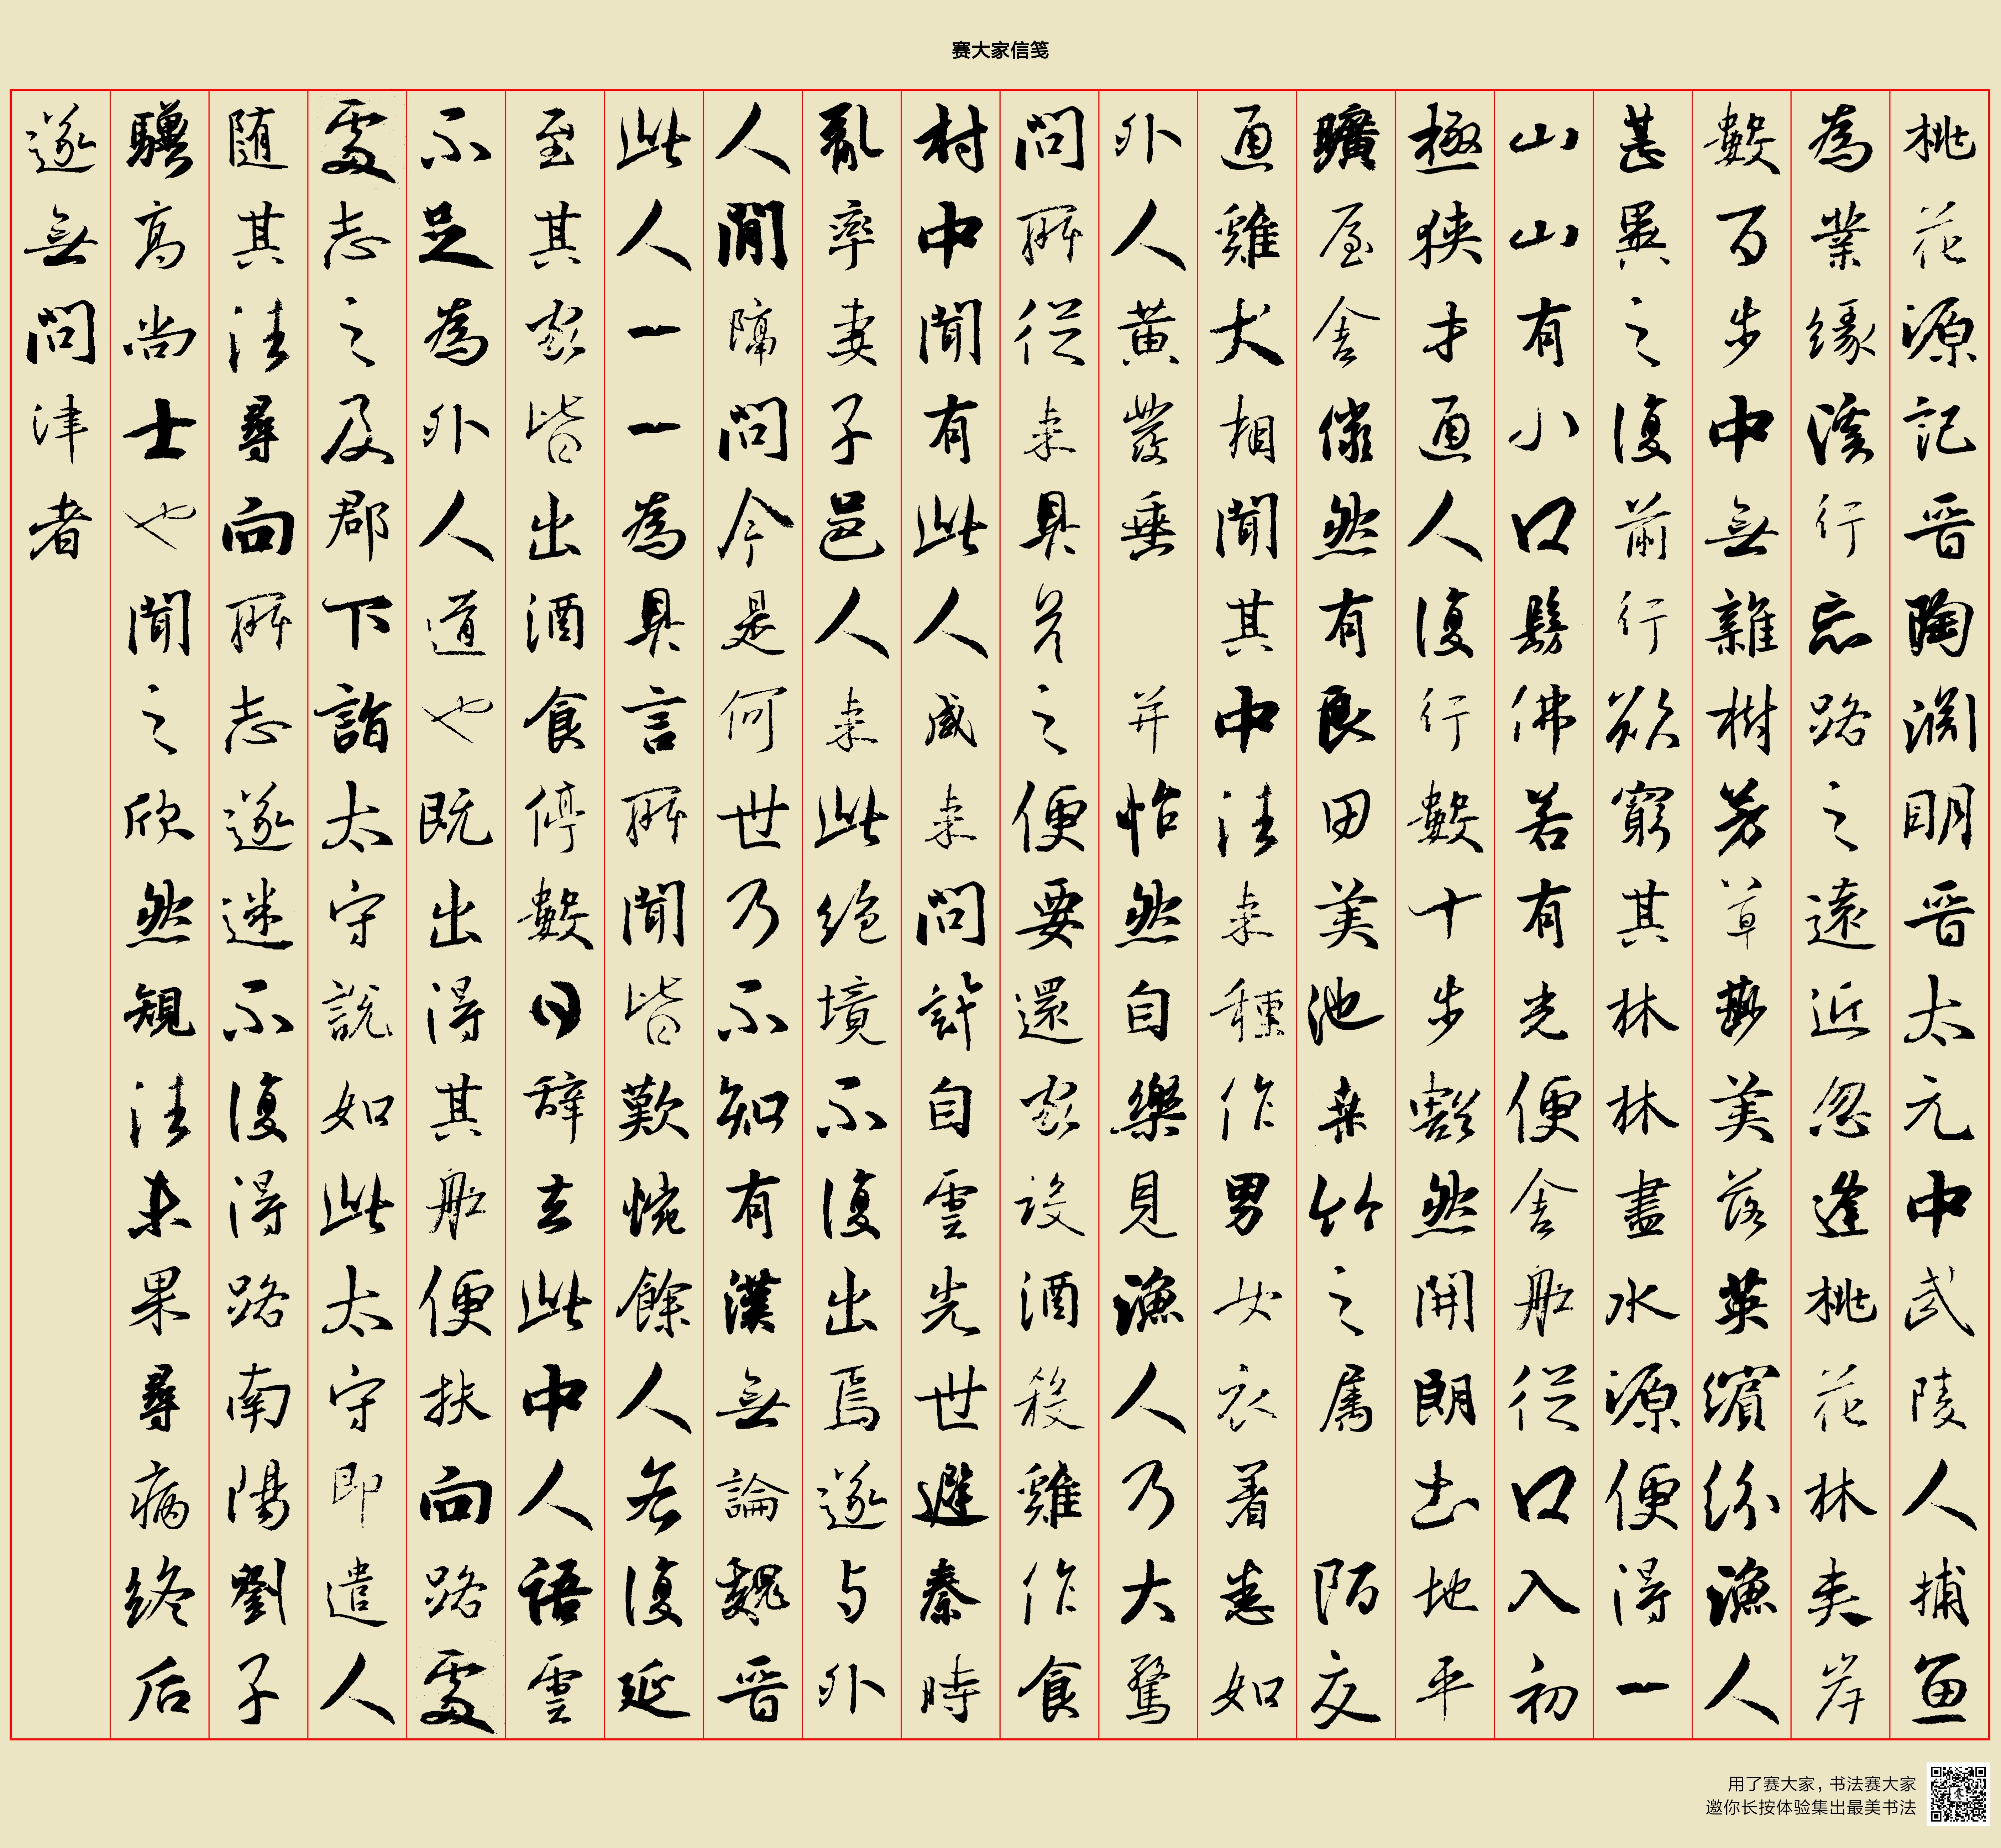 赛大家信笺
桃花源記晉陶淵明晉太元中武陵人捕魚
為業緣溪行忘路之遠近忽逢桃花林夾岸
數百步中無雜樹芳草鮮美落英繽紛漁人
甚異之復前行欲窮其林林盡水源便得一
山山有小口髣佛若有光便舍船從口入初
極狹才通人復行數十步豁然開朗土地平
曠屋舍儼然有良田美池桑竹之屬 陌交
通雞犬相聞其中往來種作男女衣着悉如
外人黃髮垂 并怡然自樂見漁人乃大驚
問所從來具答之便要還家設酒殺雞作食
村中聞有此人咸來問訊自雲先世避秦時
亂率妻子邑人來此絕境不復出焉遂与外
人間隔問今是何世乃不知有漢無論魏晉
此人一一為具言所聞皆歎惋餘人各復延
至其家皆出酒食停數日辭去此中人語雲
不足為外人道也既出得其船便扶向路處
處志之及郡下詣太守說如此太守即遣人
隨其往尋向所志遂迷不復得路南陽劉子
驥高尚士也聞之欣然規往未果尋病終后
遂無問津者
用了赛大家，书法赛大家
邀你长按体验集出最美书法